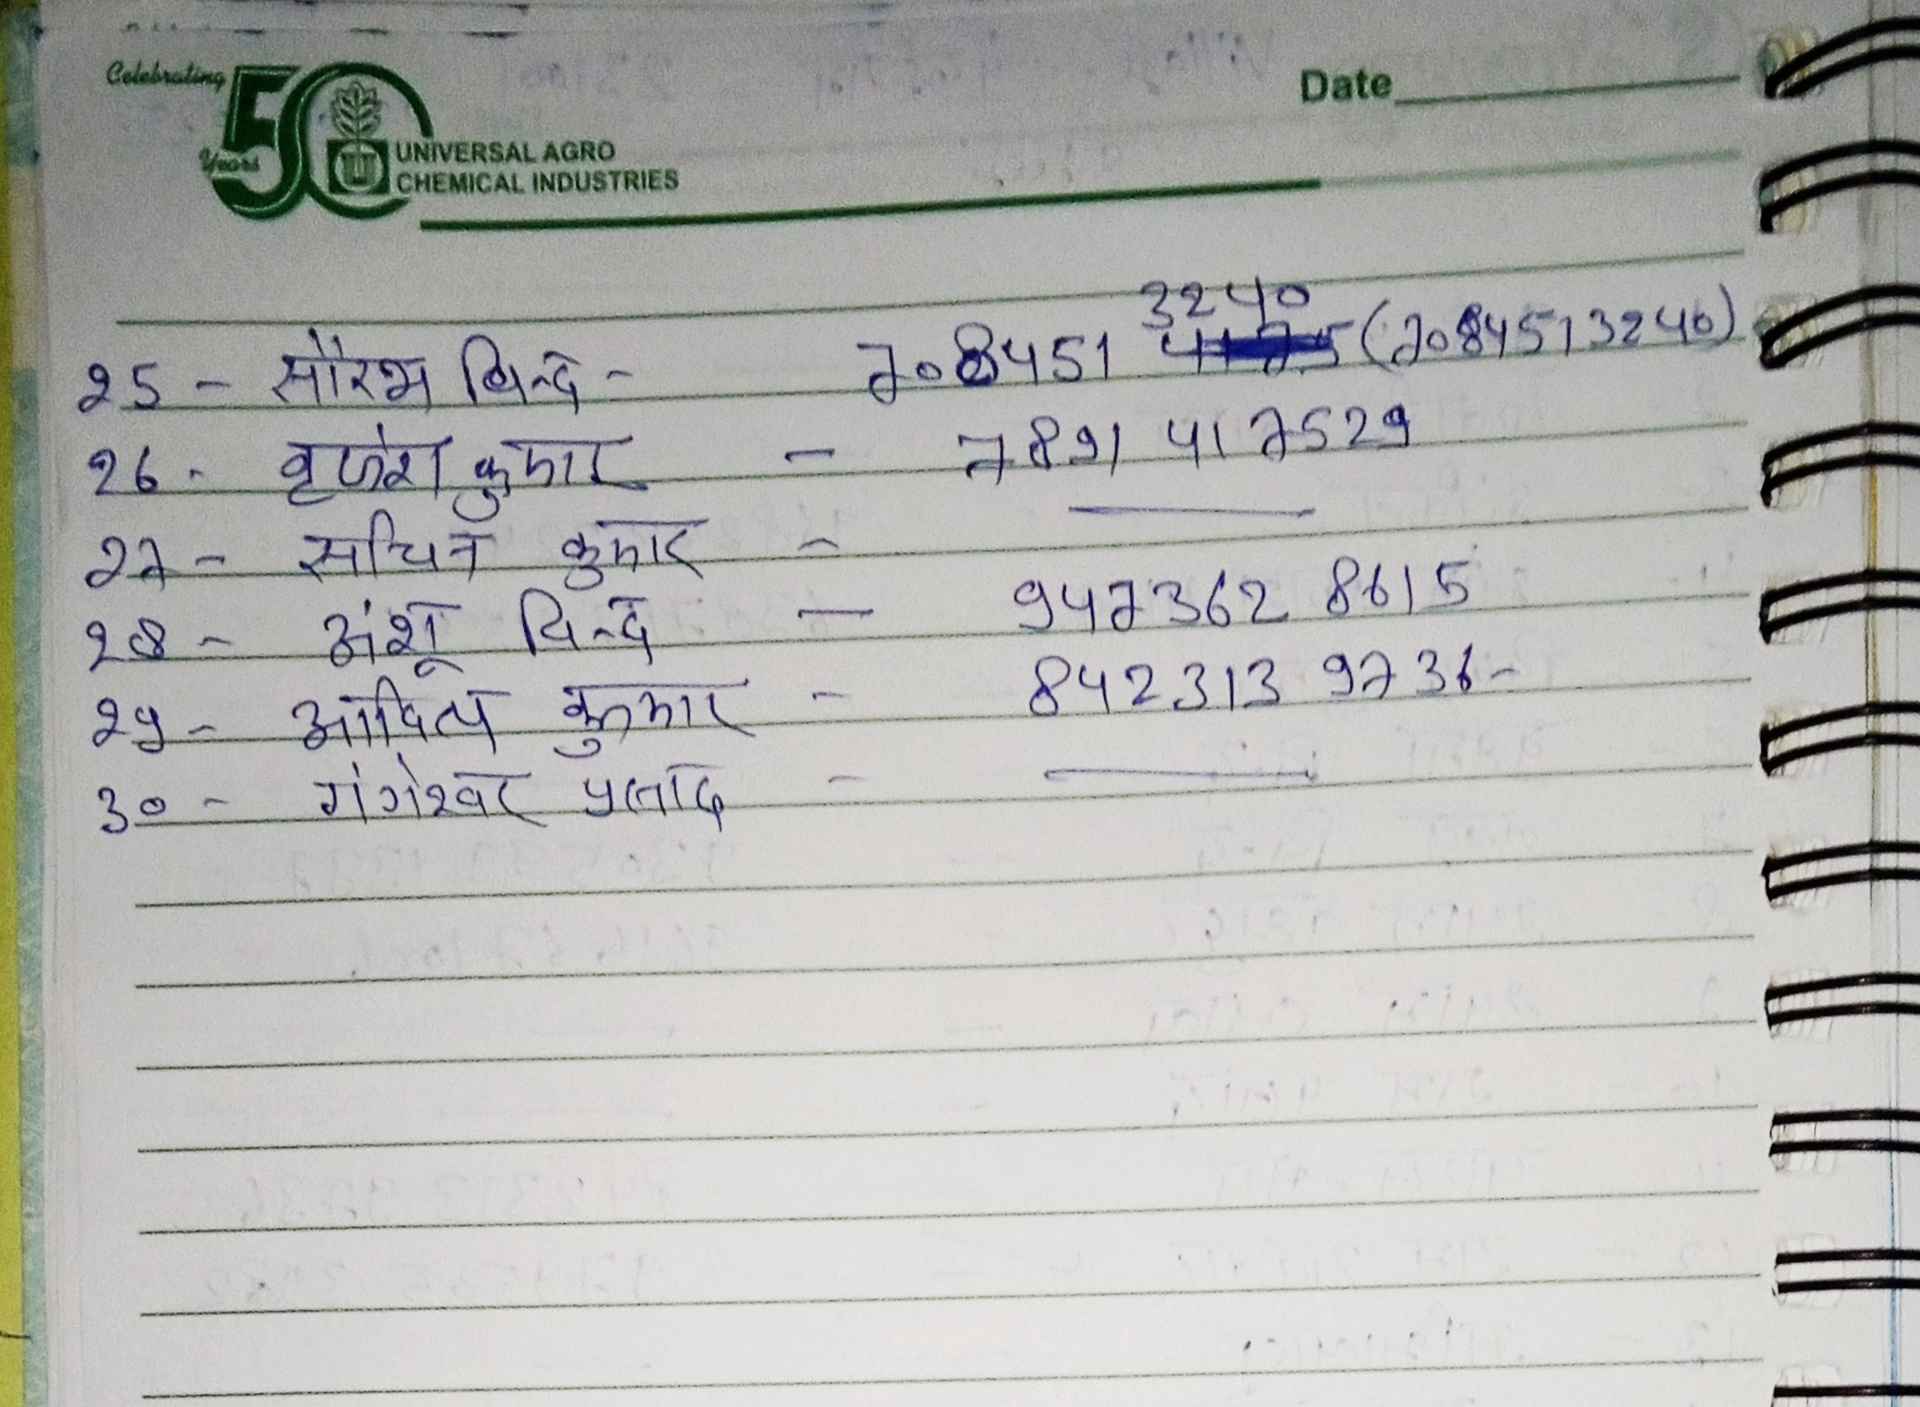 Celebrating
50
Years
UNIVERSAL AGRO
CHEMICAL INDUSTRIES
Date
3240
25 - सौरभ बिन्द - 708451 4175 (7084513240)
26 - बृजेश कुमार - 7891 417529
27 - सचिन कुमार -
28 - अंशू बिन्द - 947362 8615
29 - आदित्य कुमार - 842313 9736 -
30 - गंगेश्वर प्रसाद -